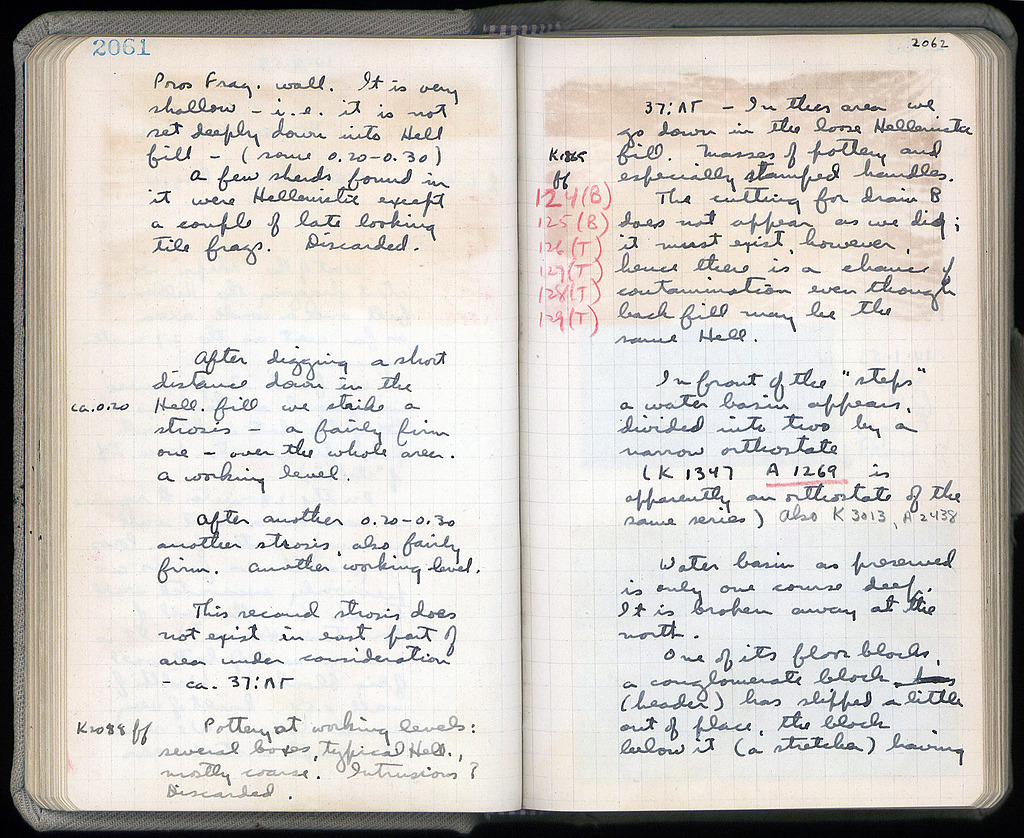 2061
Poros Frag. wall. It is very
shallow – i.e. it is not
set deeply down into Hell
fill – (some 0.20-0.30)
A few sherds found in
it were Hellenistic except
a couple of late looking
tile frags. Discarded.
After digging a short
distance down in the
ca. 0.20 Hell. fill we strike a
strosis – a fairly firm
one – over the whole area.
A working level.
After another 0.20-0.30
another strosis, also fairly
firm. Another working level.
This second strosis does
not exist in east part of
area under consideration
– ca. 37:ΛΓ
K 2088 ff Pottery at working levels:
several boxes, typical Hell.,
mostly coarse. Intrusions?
Discarded.
2062
37:ΛΓ – In this area we
go down in the loose Hellenistic
K 865 fill. Masses of pottery and
ff especially stamped handles.
124 (B) The cutting for drain B
125 (B) does not appear as we dig;
126 (T) it must exist, however,
127 (T) hence there is a chance of
128 (T) contamination even though
129 (T) back fill may be the
same Hell.
In front of the "steps"
a water basin appears,
divided into two by a
narrow orthostate
(K 1347 A 1269 is
apparently an orthostate of the
same series) Also K 3013, A 2438
Water basin as preserved
is only one course deep.
It is broken away at the
north.
One of its floor blocks,
a conglomerate block
(header) has slipped a little
out of place, the block
below it (a stretcher) having